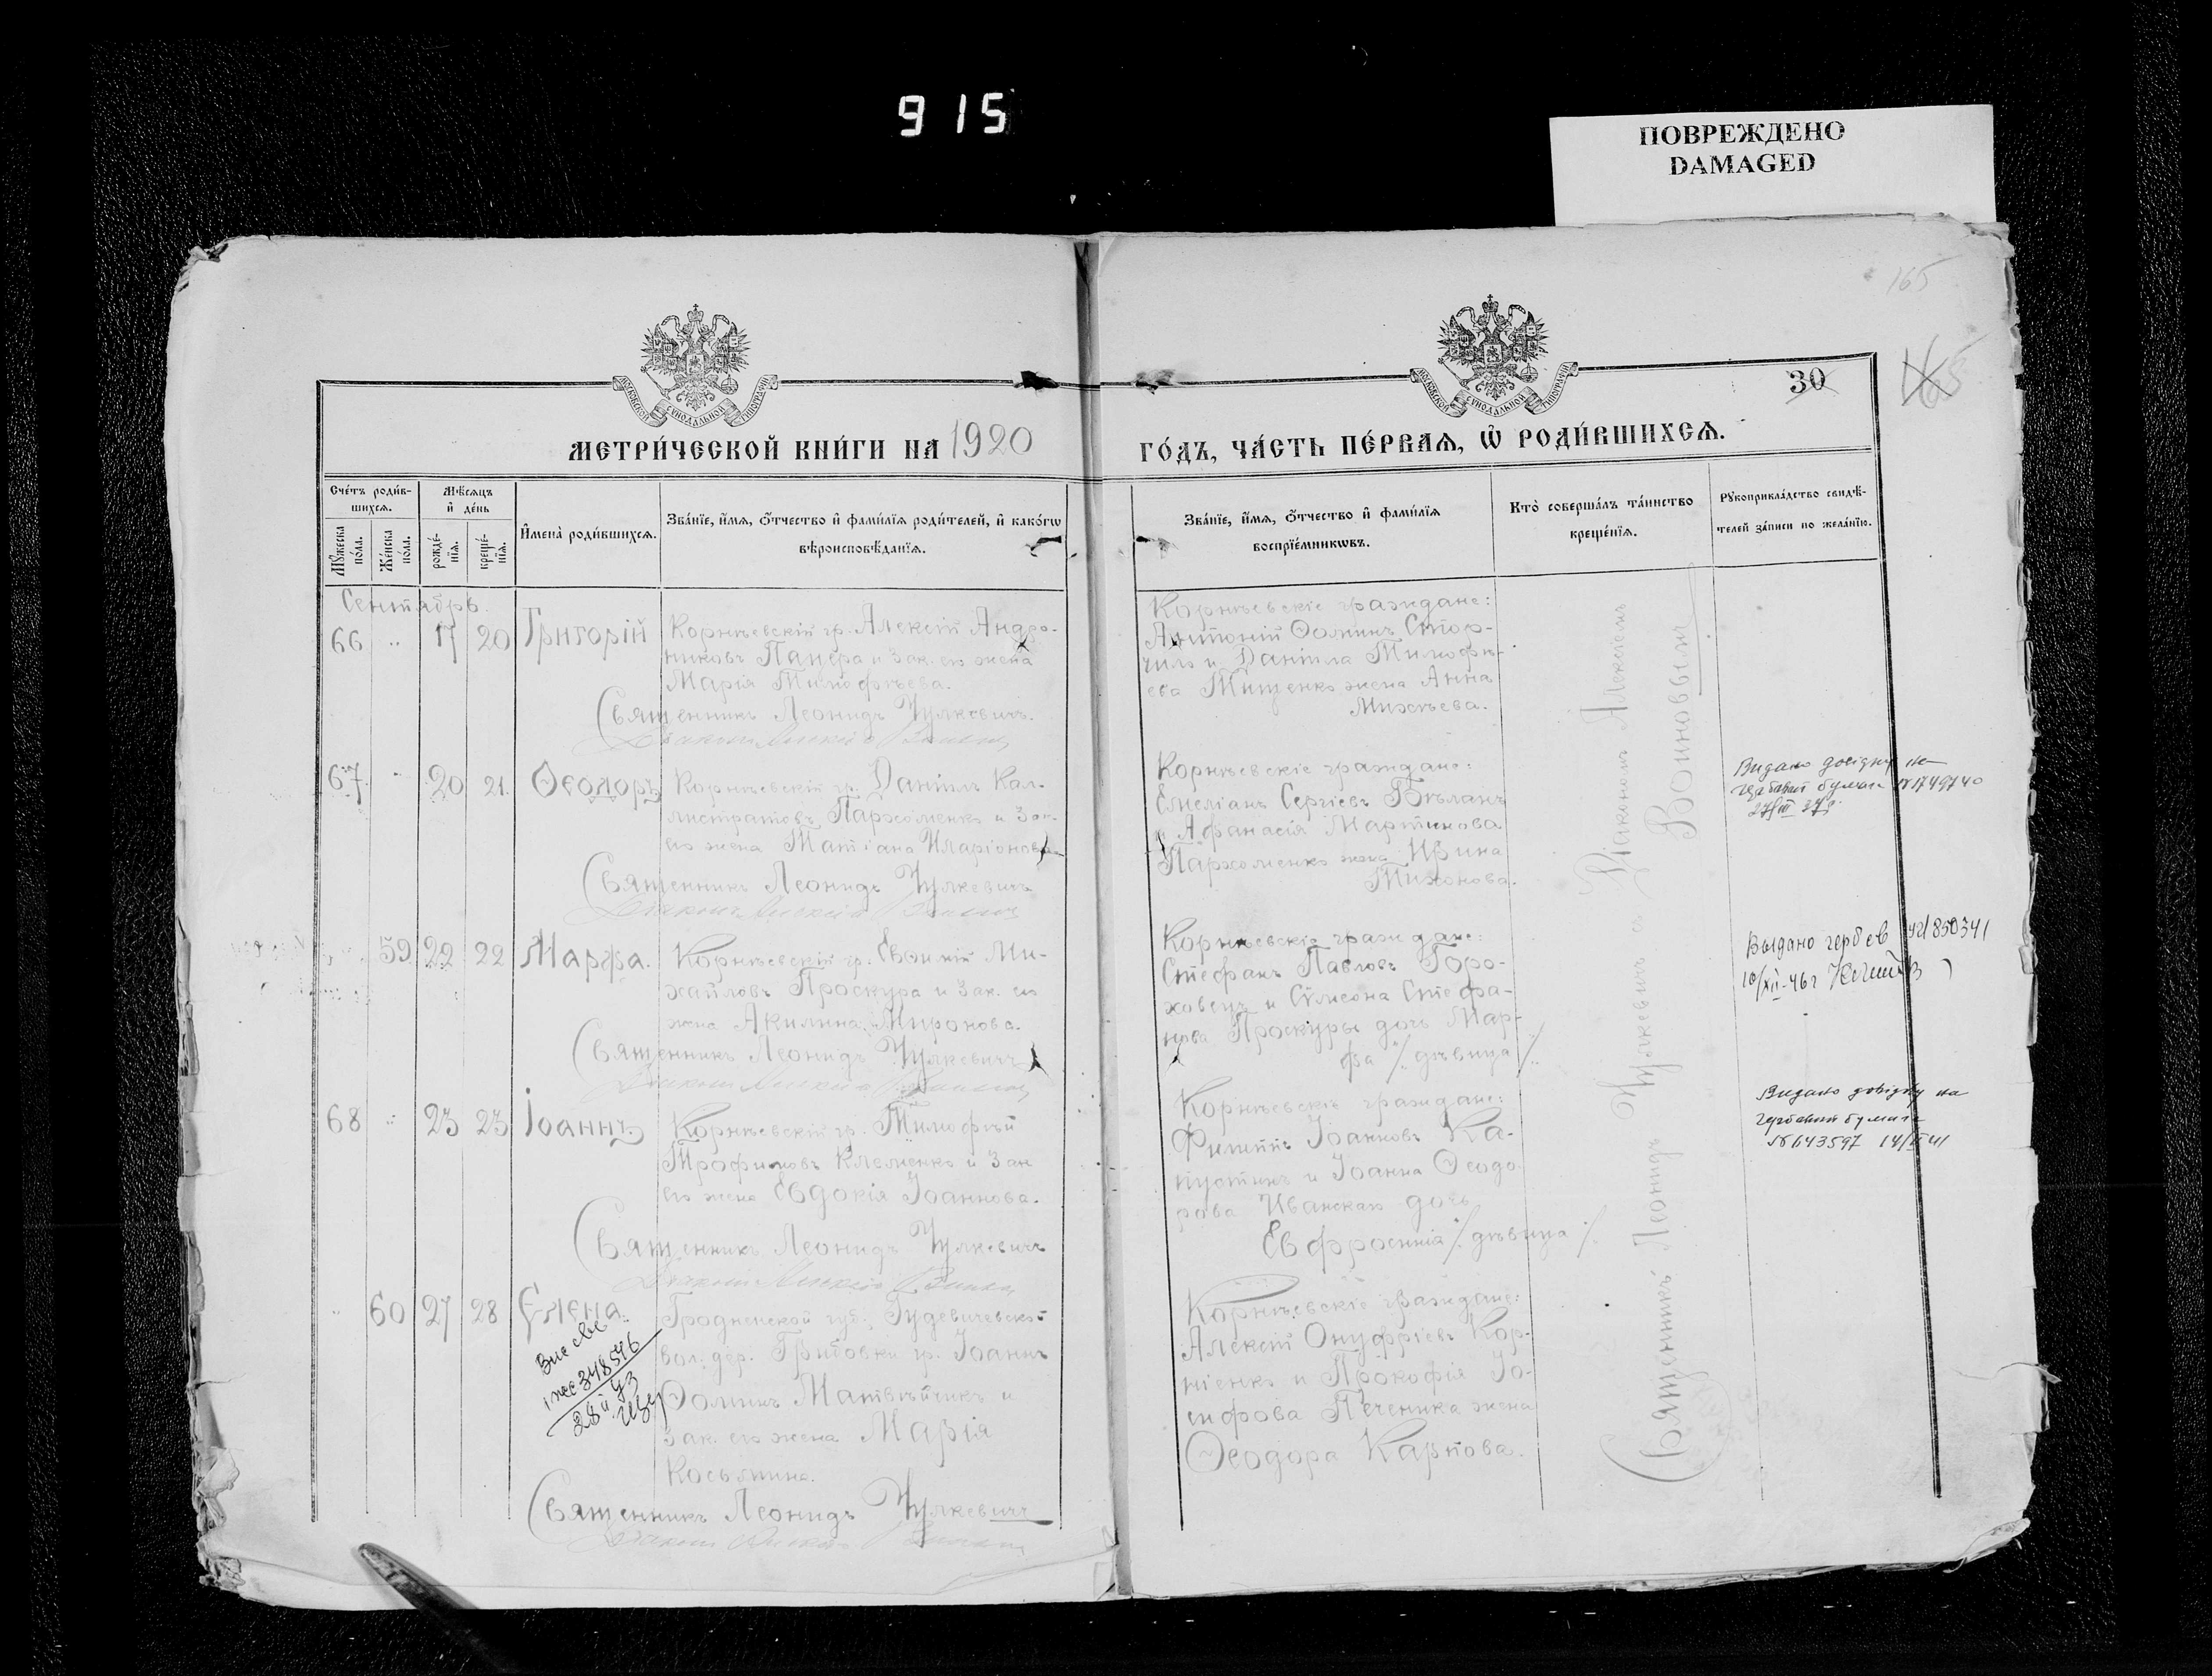 915
ПОВРЕЖДЕНО
DAMAGED
165
165
30
МОСКОВСКОЙ СѴНОДАЛЬНОЙ ТИПОГРАФІИ
МОСКОВСКОЙ СѴНОДАЛЬНОЙ ТИПОГРАФІИ
МЕТРИ́ЧЕСКОЙ КНИ́ГИ НА 1920
ГО́ДЪ, ЧА́СТЬ ПЕ́РВАѦ, Ѡ҆ РОДИ́ВШИХСѦ.
Сче́тъ роди́в-
шихсѧ.
Мꙋжеска по́ла.
Же́нска по́ла.
Мѣ́сѧцъ
и҆ де́нь
рожде́-
нїѧ.
креще́-
нїѧ.
И҆мена̀ роди́вшихсѧ.
Зва́нїе, и҆́мѧ, ѻ҆́тчество и҆ фами́лїѧ роди́телей, и҆ како́гѡ
вѣроисповѣ́данїѧ.
Зва́нїе, и҆́мѧ, ѻ҆́тчество и҆ фами́лїѧ
воспрїе́мникѡвъ.
Кто̀ соверша́лъ та́инство
креще́нїѧ.
Рꙋкоприкла́дство свидѣ́-
телей за́писи по жела́нїю.
Сентябрь.
66 " 17 20 Григорій
Корнѣевскій гр. Алексій Андро-
никовъ Пацера и зак. его жена
Марія Тимофѣева.
Священникъ Леонидъ Чулкевичъ.
Корнѣевскіе граждане:
Антоній Ѳоминъ Стор-
чило и Даніила Тимофѣ-
ева Тищенко жена Анна
Михѣева.
67. " 20 21. Ѳеодоръ
Корнѣевскій гр. Даніилъ Кал-
листратовъ Пархоменко и Зак.
его жена Татіана Иларіонова
Священникъ Леонидъ Чулкевичъ
Корнѣевскіе граждане:
Емеліанъ Сергіевъ Бѣланъ
и Афанасія Мартинова
Пархоменко жена Ирина
Тихонова.
Видано довідку на
гербовій бумазі №1749740
59 22 22 Марфа.
Корнѣевскій гр. Евфимій Ми-
хайловъ Проскура и Зак. его
жена Акилина Миронова.
Священникъ Леонидъ Чулкевичъ
Корнѣевскіе граждане:
Стефанъ Павловъ Горо-
ховецъ и Сѵмеона Стефа-
нова Проскуры дочь Мар-
фа /. дѣвица /.
Выдано гербов 850341
10/XII-46г
68 " 23 23 Іоаннъ
Корнѣевскій гр. Тимофѣй
Трофимовъ Клеменко и Зак
его жена Евдокія Іоаннова.
Священникъ Леонидъ Чулкевичъ
Корнѣевскіе граждане:
Филиппъ Іоанновъ Ка-
пустинъ и Іоанна Ѳеодо-
рова Иванскаго дочь
Евфросинія /. дѣвица /.
Видано довідку на
гербовий бумазі
№643597
" 60 27 28 Елена.
348546
Гродненской губ., Гудевичевской
вол. дер. Грибовки гр. Іоаннъ
Ѳоминъ Матвѣйчикъ и
Зак. его жена Марія
Косьмина.
Священникъ Леонидъ Чулкевичъ
Корнѣевскіе граждане:
Алексій Онуфріевъ Кор-
ніенко и Прокофія Іо-
сифова Печеника жена
Ѳеодора Карпова.
Священникъ Леонидъ Чулкевичъ съ Діакономъ Алексіемъ
Воиновымъ